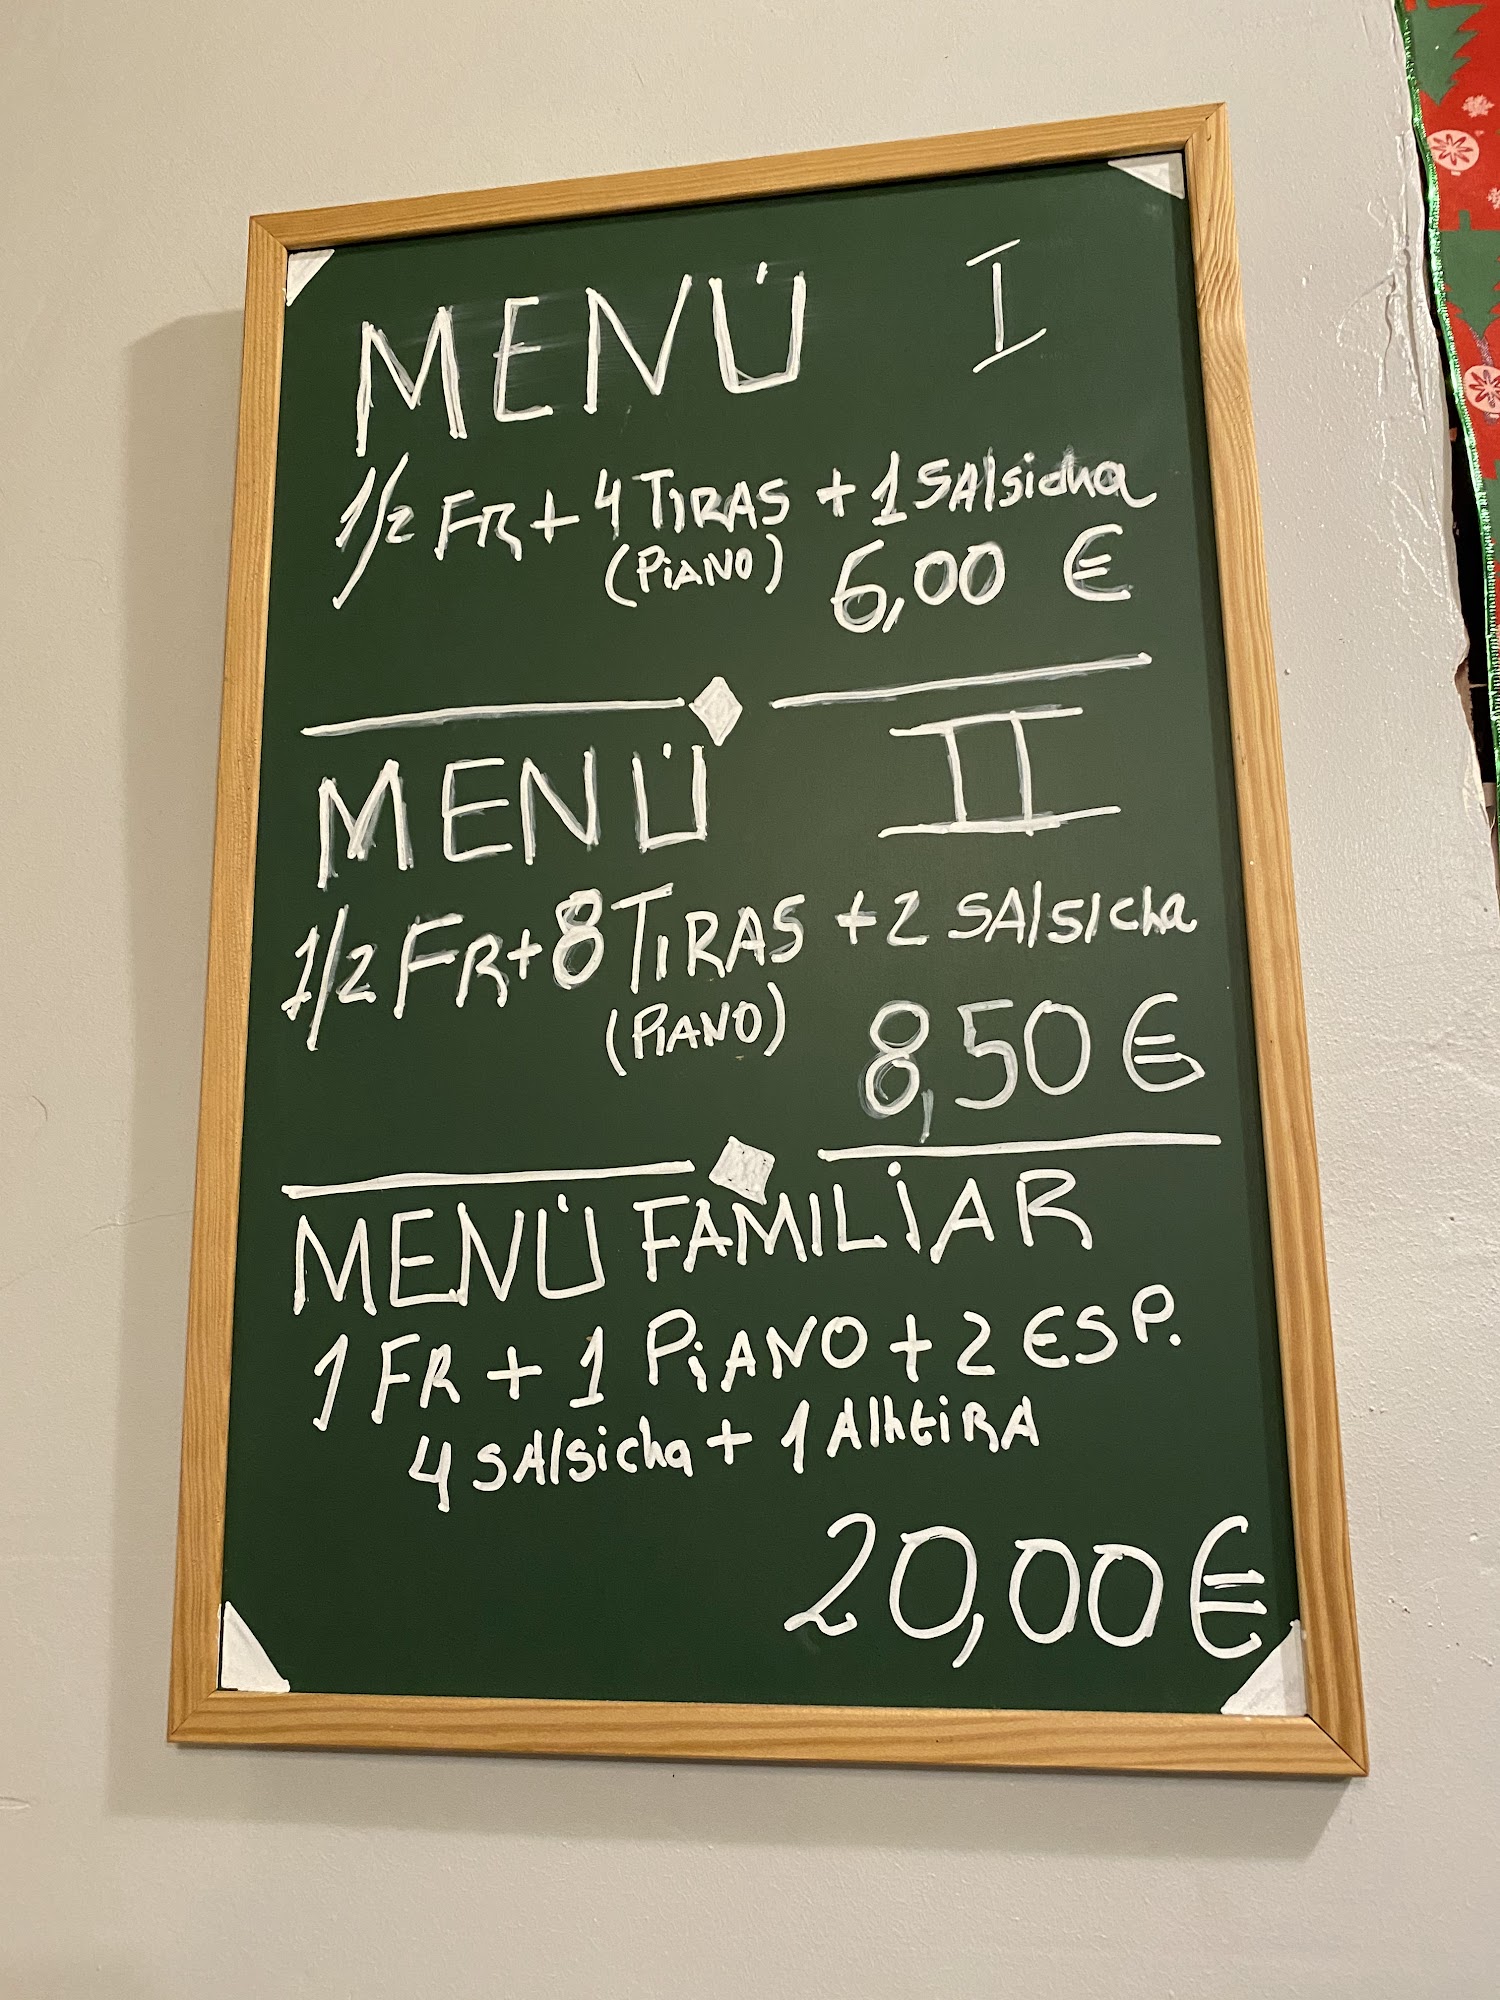 MENÚ I
1/2 FR + 4 TIRAS + 1 SAlsicha
(PiANO) 6,00 €
MENÚ II
1/2 FR + 8 TIRAS + 2 SAlsicha
(PiANO) 8,50 €
MENÚ FAMILiAR
1 FR + 1 PiANO + 2 ESP.
4 SAlsicha + 1 AlhEiRA
20,00 €